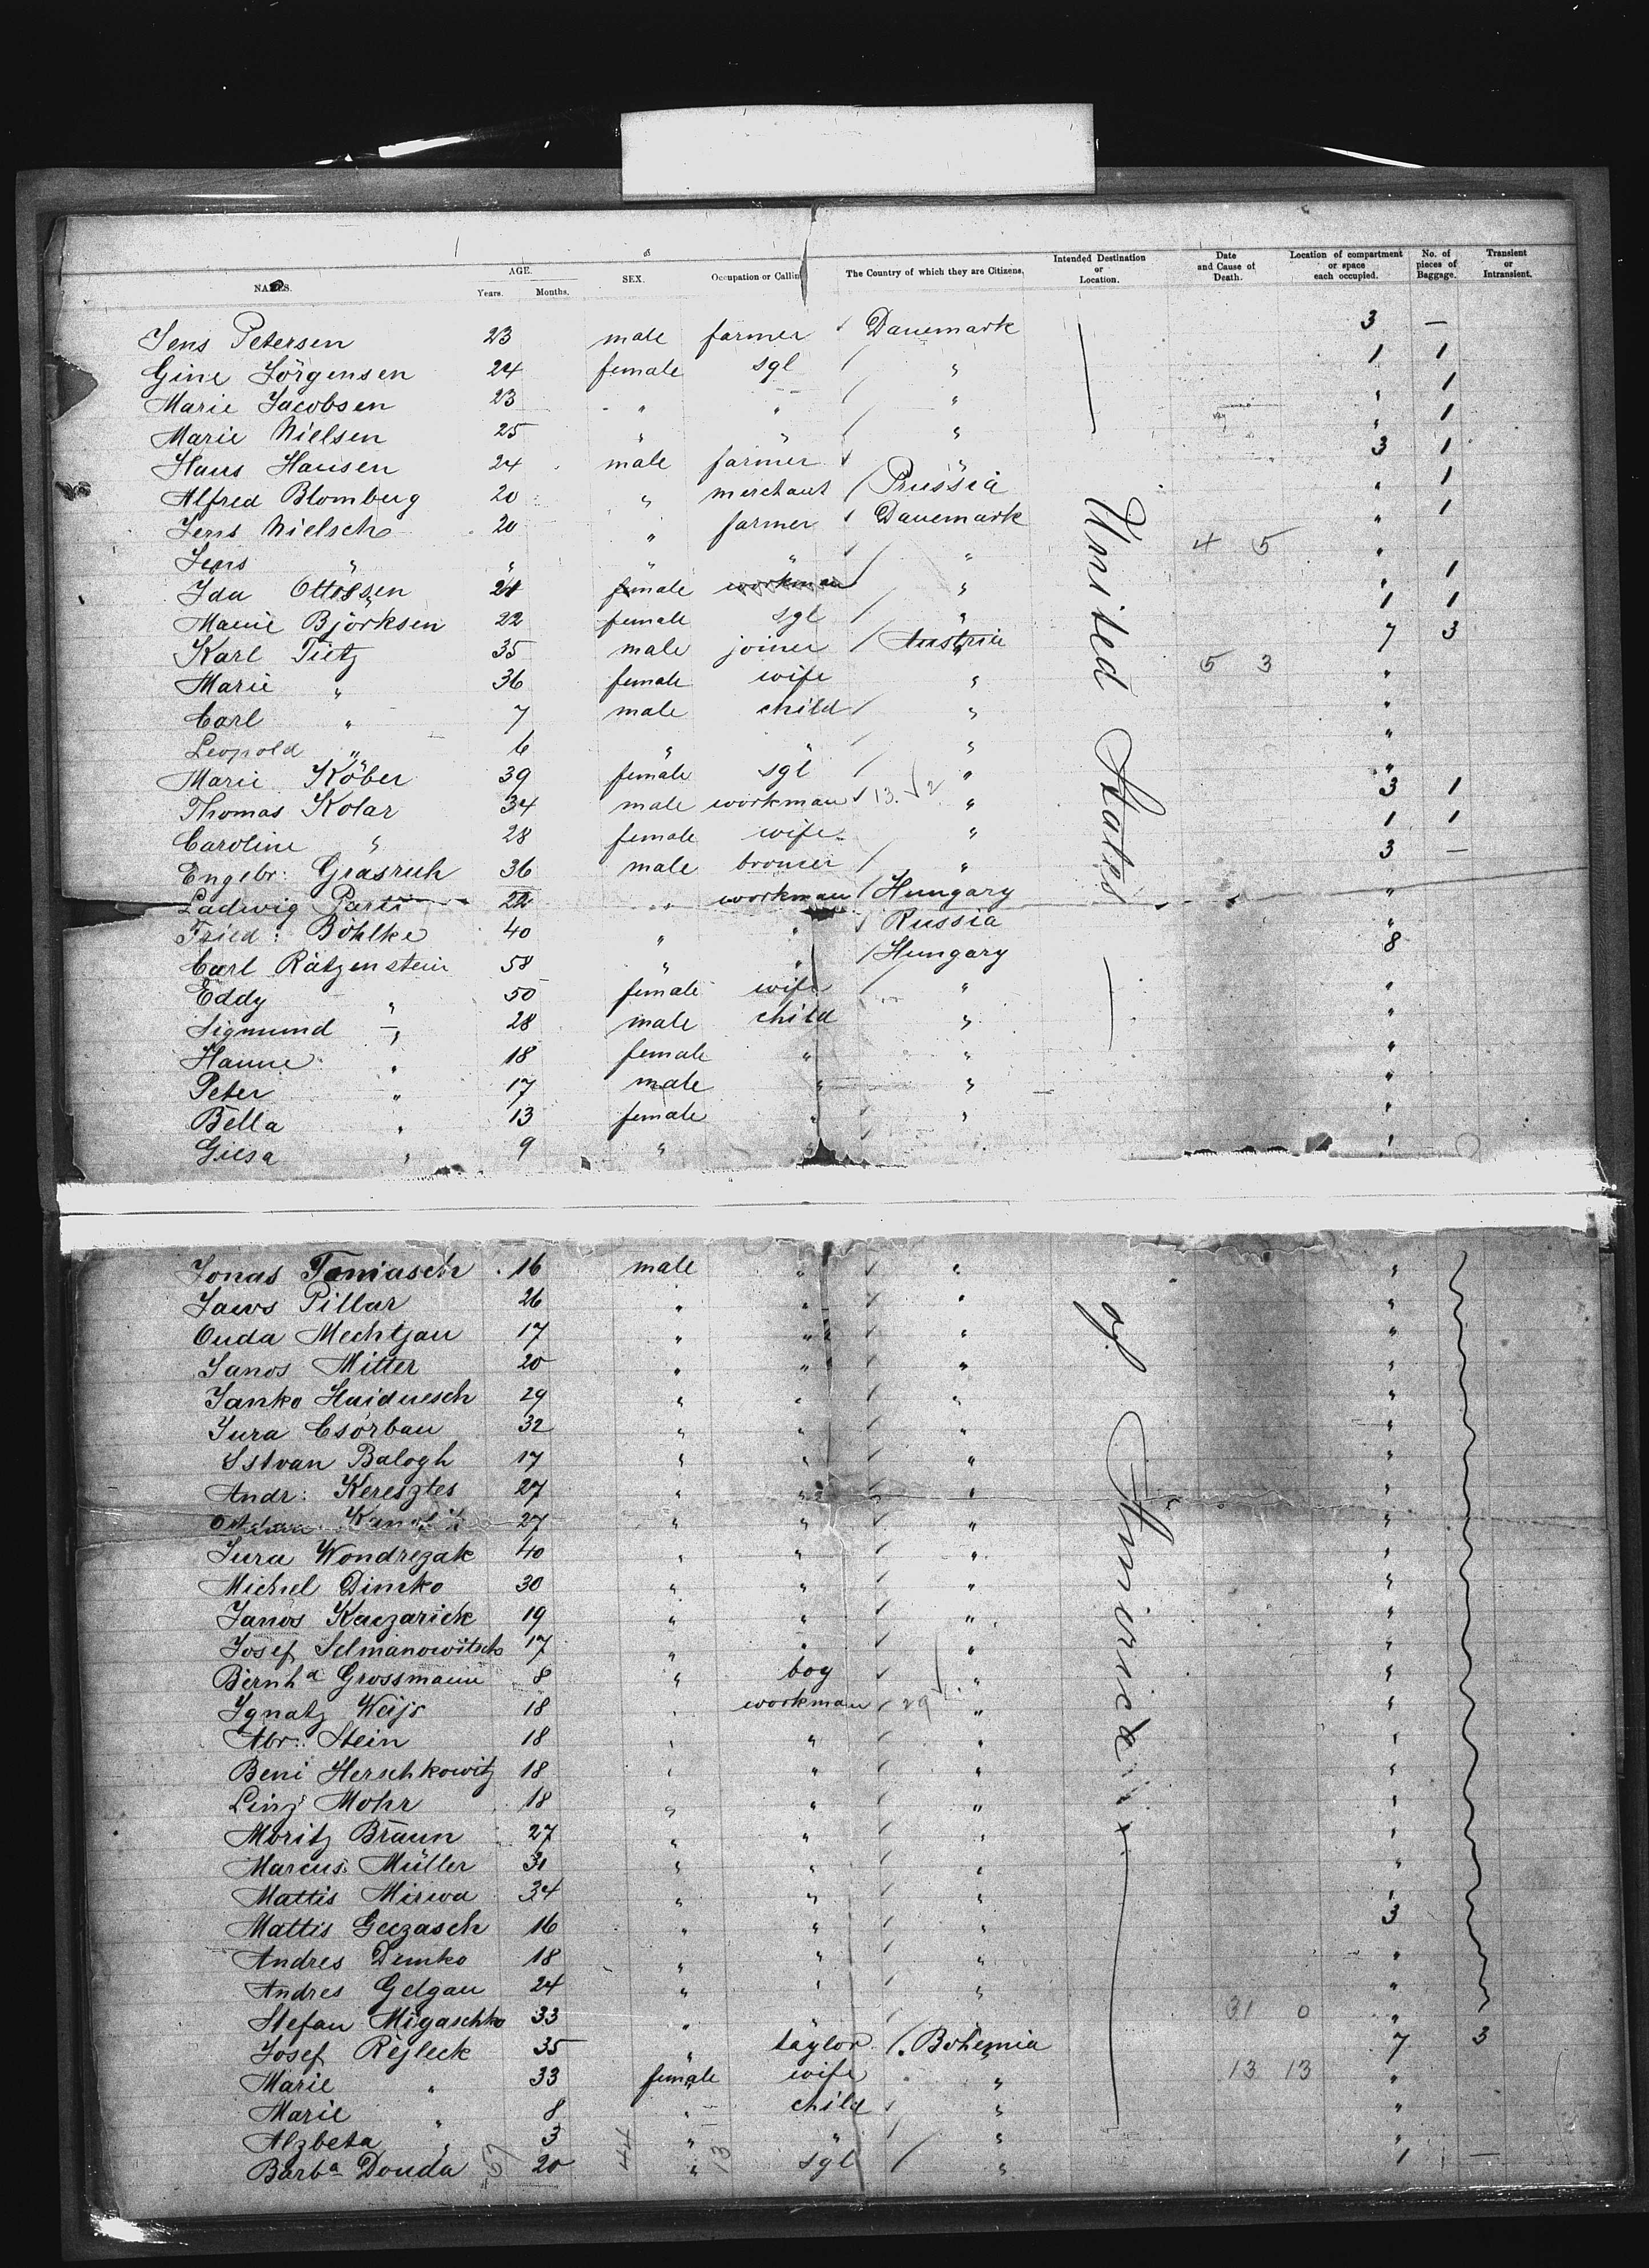 NAMES. AGE. Years. Months. SEX. Occupation or Calling The Country of which they are Citizens. Intended Destination or Location. Date and Cause of Death. Location of compartment or space each occupied. No. of pieces of Baggage. Transient or Intransient.
Jens Petersen 23 male farmer Danemark 3 —
Gine Jörgensen 24 female sgl " 1 1
Marie Jacobsen 23 " " " " 1
Marie Nielsen 25 " " " " 1
Hans Hansen 24 male farmer " 3 1
Alfred Blomberg 20 " merchant Prussia " 1
Jens Nielsch 20 " farmer Danemark " 1
Jens " " " " " 4 5 "
Ida Ottessen 24 female workman " " 1
Marie Björksen 22 female sgl " 1 1
Karl Tietz 35 male joiner Austria 7 3
Marie " 36 female wife " 5 3 "
Carl " 7 male child " "
Leopold " 6 " " " "
Marie Köber 39 female sgl " "
Thomas Kolar 34 male workman 13. 2 " 3 1
Caroline " 28 female wife " 1 1
Engelbr: Grasrich 36 male " 3 —
Ladwig Parti 22 " workman Hungary "
Fried: Böhlke 40 " " Russia "
Carl Rätzenstein 58 " " Hungary 8
Eddy " 50 female wife " "
Sigmund " 28 male child " "
Hanne " 18 female " " "
Peter " 17 male " " "
Bella " 13 female " " "
Giesa " 9 " " " "
United States
Jonas Tomasch 16 male " " "
Jaws Pillar 26 " " " "
Ouda Mechtjan 17 " " " "
Janos Mitter 20 " " " "
Janko Haiduesch 29 " " " "
Jura Csórbau 32 " " " "
Istvan Balogh 17 " " " "
Andr: Keresztes 27 " " " "
27 " " " "
Jura Wondrezak 40 " " " "
Michel Dimko 30 " " " "
Janos Kaczarick 19 " " " "
Josef Selmanowitsch 17 " " " "
Bernhd Grossmann 8 " boy " "
Ignatz Weijs 18 " workman 29 " "
Abr: Stein 18 " " " "
Beni Herschkowitz 18 " " " "
Linz Mohr 18 " " " "
Moritz Braun 27 " " " "
Marcus Müller 31 " " " "
Mattis Mirwa 34 " " " "
Mattis Geczasch 16 " " " 3
Andres Demko 18 " " " "
Andres Gelgau 24 " " " "
Stefan Migaschko 33 " 31 0 "
Josef Rejleck 35 " taylor Bohemia 7 3
Marie " 33 female wife " 13 13 "
Marie " 8 " child " "
Alzbeta " 3 " " " "
Barba Douda 20 " sgl " 1 —
of America
57 44 13